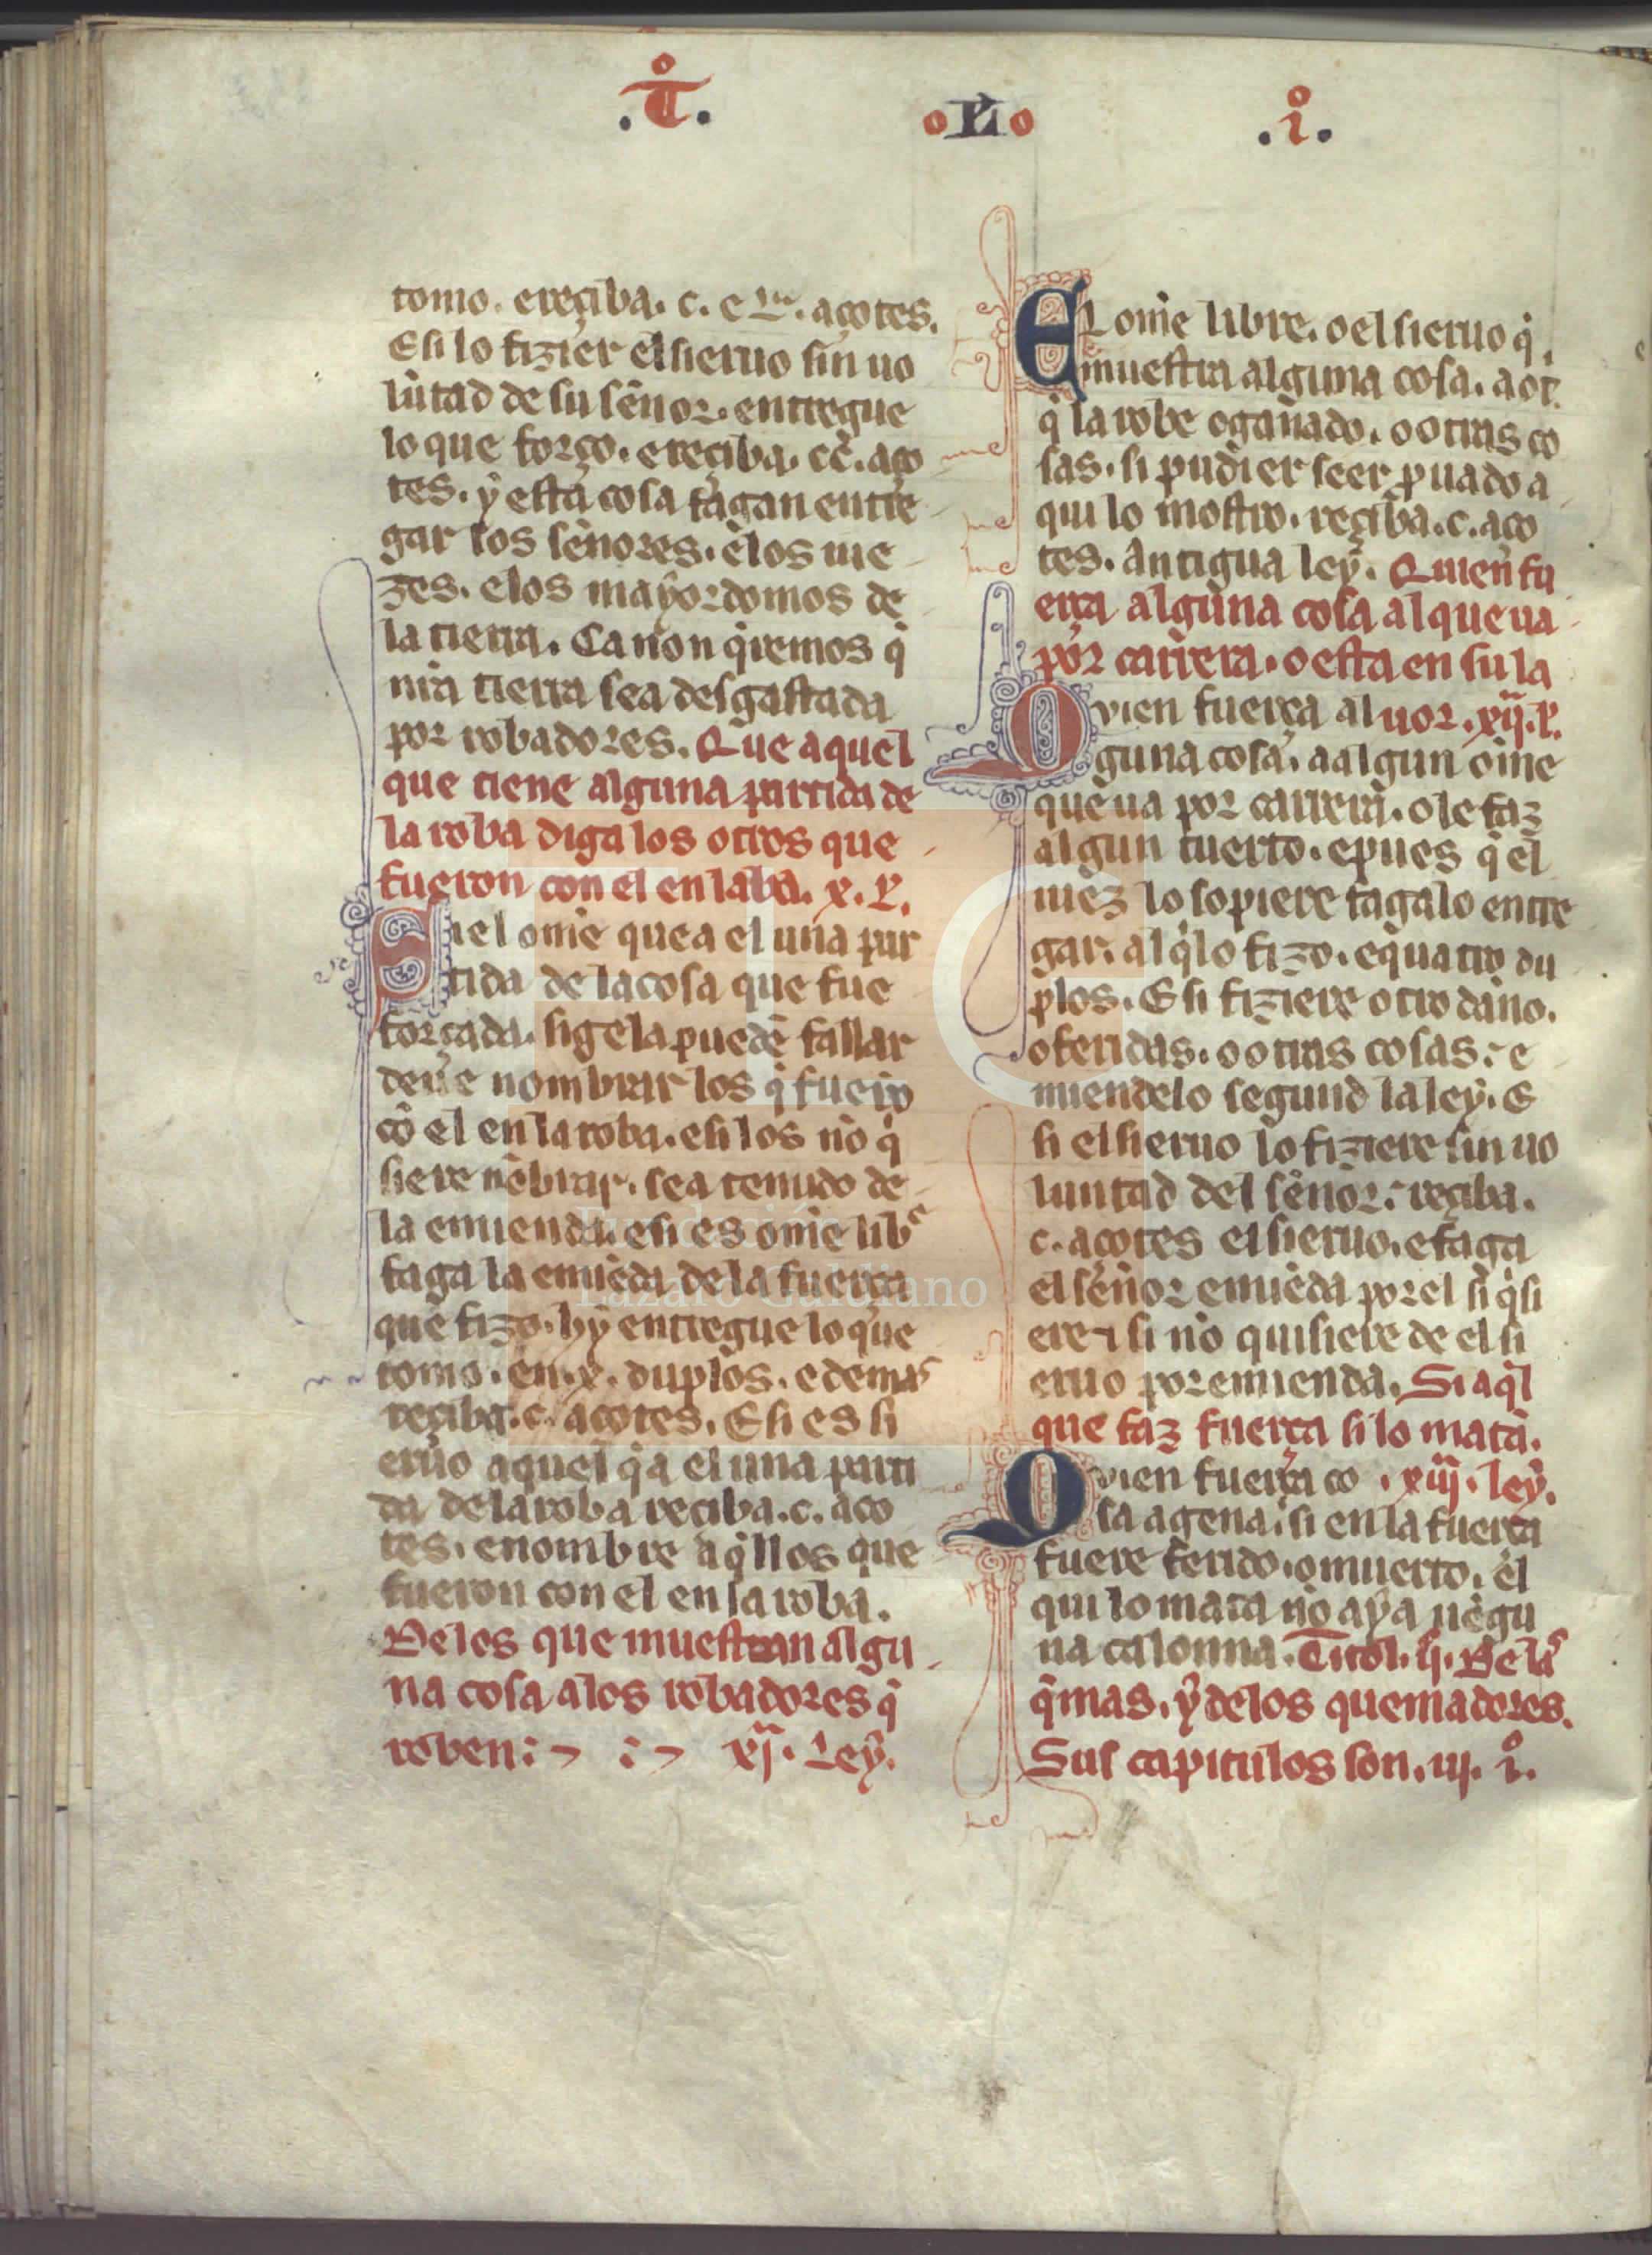 .T̊.
.L.
.i̊.
tomo. e reçiba. c. e la. açotes.
E si lo fizier el sieruo sin uo
lūtad de su señor. entregue
lo que forço. e reçiba. cc. aço
tes. ẏ esta cosa fagan entre
gar los señores. e los iue
zes. e los maẏordomos de
la tierra. Ca non q̇remos q̇
nr̄a tierra sea desgastada
por robadores. Que aquel
que tiene alguna partida de
la roba diga los otros que
fueron con el en laba. x. L.
En el ome que a el una par
tida de la cosa que fue
forçada. si gela puedē fallar
deue nombrar los q̇ fuerō
cō el en la roba. e si los nō q̇
siere nōbrar. sea tenudo de
la emienda. e si es ome libᵉ
faga la emiēda de la fuerça
que fizo. hẏ entregue lo que
tomo. en. x. duplos. e demas
reçiba. c. açotes. E si es si
eruo aquel q̇ a el una parti
da de la roba reçiba. c. aço
tes. e nombre aq̇llos que
fueron con el en la roba.
De los que muestran algu
na cosa a los robadores q̇
roben: xj. Leẏ.
El ome libre. o el sieruo q̇
muestra alguna cosa. a ot̄
q̇ la robe o ganado. o otras co
sas. si pudier seer ꝓuado a
qui lo mostro. reçiba. c. aço
tes. Antigua leẏ. Quien fu
erça alguna cosa al que ua
por carrera. o esta en su la
Qvien fuerça al uor. xij. L.
guna cosa. a algun ome
que ua por carrera. o le faz
algun tuerto. e pues q̇ el
iuez lo sopiere fagalo entre
gar. al q̇ lo fizo. e quatro du
plos. E si fiziere otro daño.
o feridas. o otras cosas. e
miendelo segund la leẏ. E
si el sieruo lo fiziere sin uo
luntad del señor. reçiba.
c. açotes el sieruo. e faga
el señor emiēda por el si q̇si
ere ⁊ si nō quisiere de el si
eruo por emienda. Si aq̄l
que faz fuerça si lo matā.
Qvien fuerça co . xiij. leẏ.
sa agena. si en la fuerça
fuere ferido. o muerto. el
qui lo mata nō aẏa nēgu
na calonna. Titol. ij. De las
q̇mas. ẏ de los quemadores.
Sus capitulos son. iij. i̊.
Fundación
Lázaro Galdiano